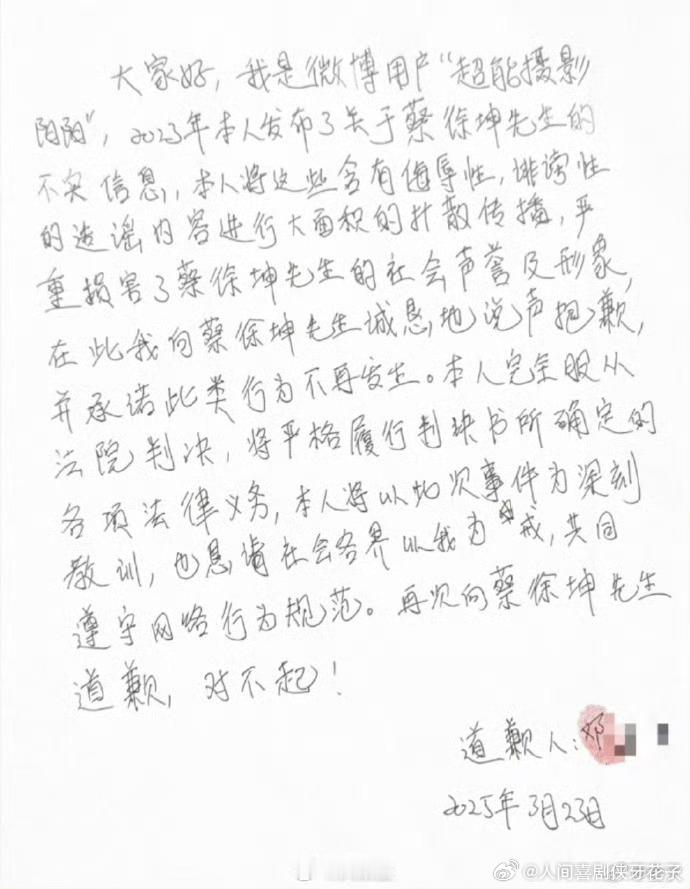 大家好，我是微博用户“超能摄影
阳阳”，2023年本人发布了关于蔡徐坤先生的
不实信息，本人将这些含有侮辱性，诽谤性
的造谣内容进行大面积的扩散传播，严
重损害了蔡徐坤先生的社会声誉及形象，
在此我向蔡徐坤先生诚恳地说声抱歉，
并承诺此类行为不再发生。本人完全服从
法院判决，将严格履行判决书所确定的
各项法律义务，本人将以此次事件为深刻
教训，也恳请社会各界以我为戒，共同
遵守网络行为规范。再次向蔡徐坤先生
道歉，对不起！
道歉人：邓
2025年3月23日
@人间喜剧侠牙花子